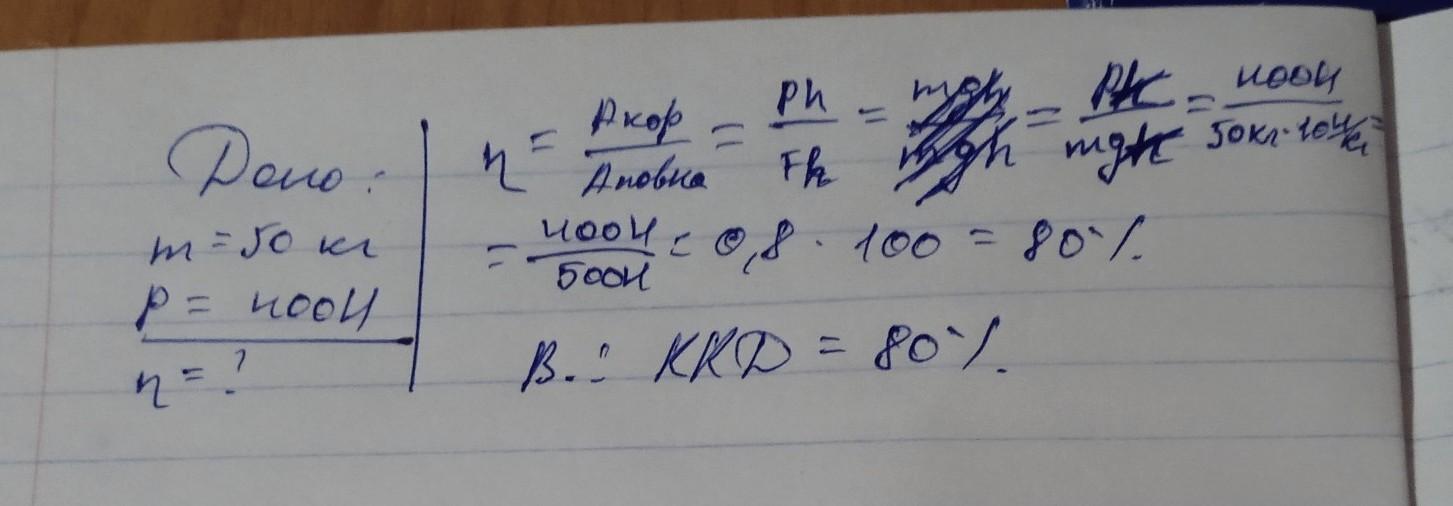 Дано:
m = 50 кг
P = 400Н
η = ?
η = Aкор/Aповна = Ph/Fh = mgh/mgh = Ph/mgh = 400Н/50кг·10Н/кг =
= 400Н/500Н = 0,8 · 100 = 80%.
В.: ККД = 80%.